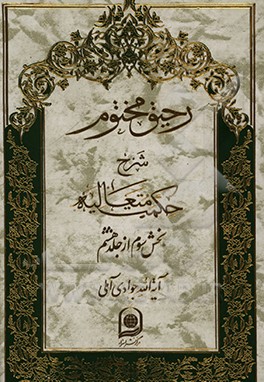 رحیق مختوم
شرح
حکمت متعالیه
بخش سوم از جلد ششم
آیة الله جوادی آملی